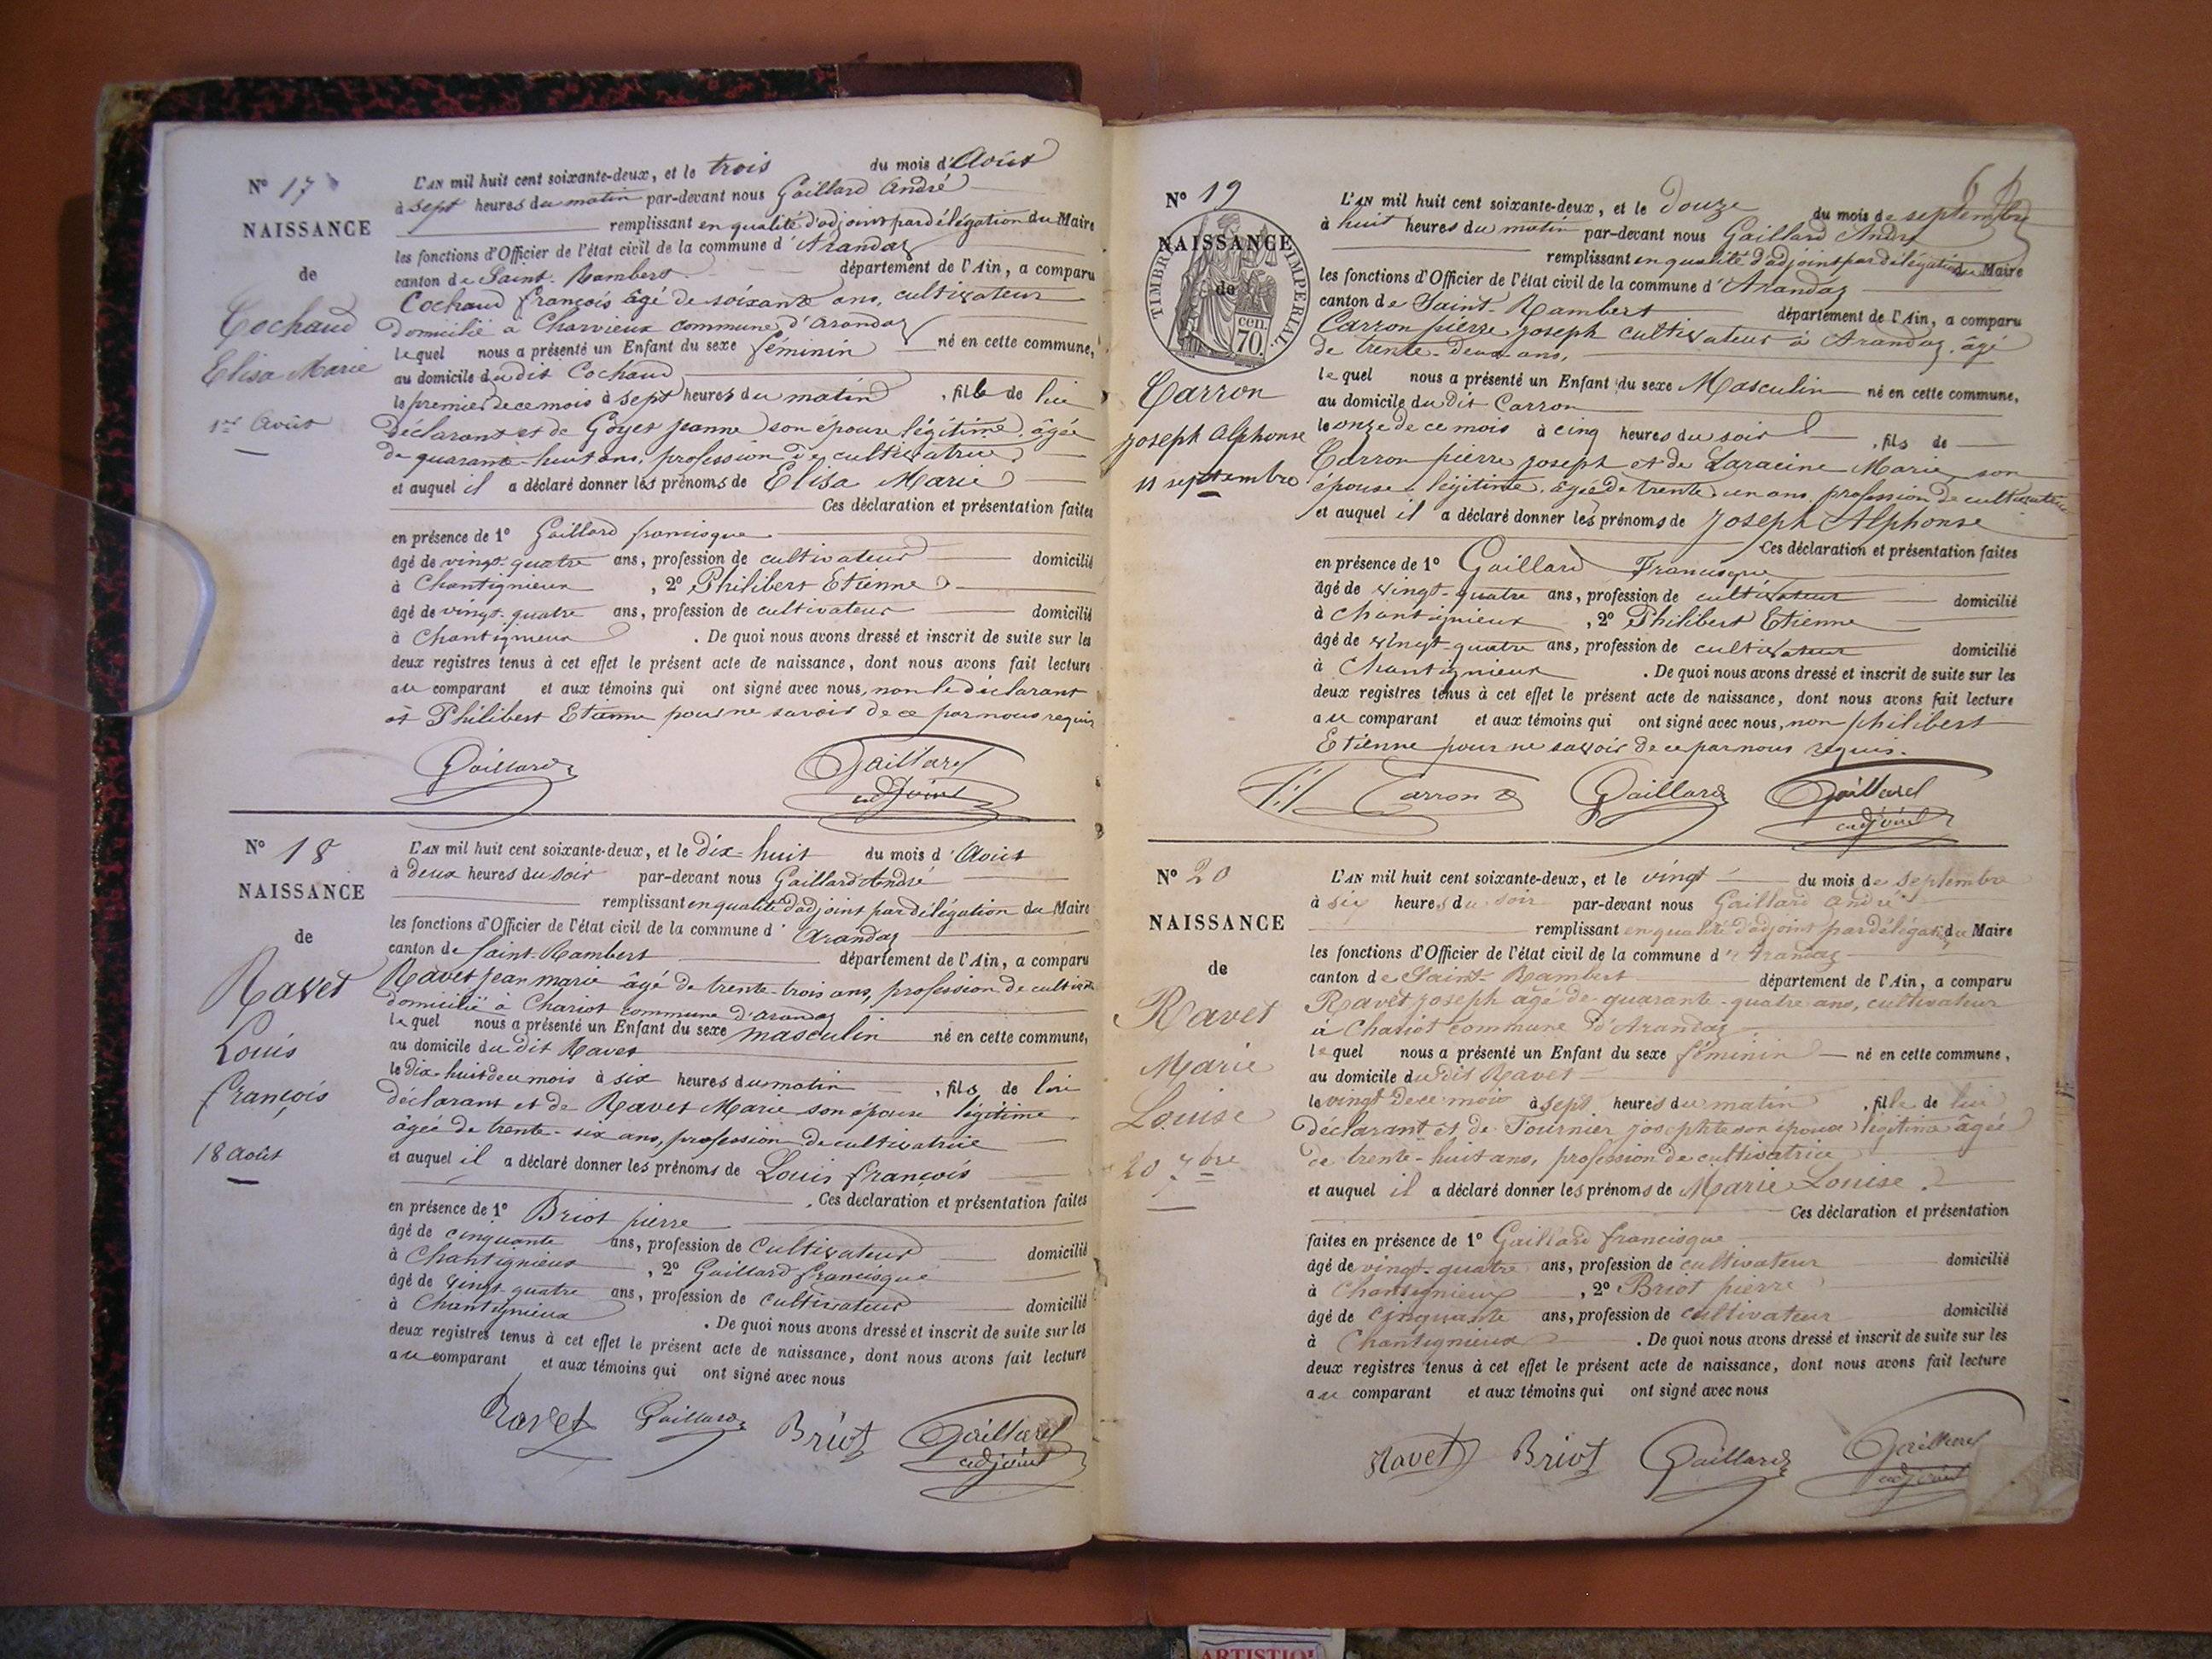 N° 17
NAISSANCE
de
Cochaud
Elisa Marie
1er Août
L'AN mil huit cent soixante-deux, et le trois du mois d'Août
à sept heures du matin par-devant nous Gaillard André
remplissant en qualité d'adjoint par délégation du Maire
les fonctions d'Officier de l'état civil de la commune d'Arandaz
canton de Saint-Rambert département de l'Ain, a comparu
Cochaud françois âgé de soixante ans, cultivateur
domicilié à Charvieux commune d'Arandaz
lequel nous a présenté un Enfant du sexe féminin né en cette commune,
au domicile du dit Cochaud
le premier de ce mois à sept heures du matin, fille de lui
déclarant et de Goyet Jeanne son épouse légitime, âgée
de quarante-huit ans, profession de cultivatrice
et auquel il a déclaré donner les prénoms de Elisa Marie
Ces déclaration et présentation faites
en présence de 1° Gaillard francisque
âgé de vingt-quatre ans, profession de cultivateur domicilié
à Chantignieux, 2° Philibert Etienne
âgé de vingt-quatre ans, profession de cultivateur domicilié
à Chantignieux. De quoi nous avons dressé et inscrit de suite sur les
deux registres tenus à cet effet le présent acte de naissance, dont nous avons fait lecture
au comparant et aux témoins qui ont signé avec nous, non le déclarant
et Philibert Etienne pour ne savoir de ce par nous requis
Gaillard Gaillard
adjoint
N° 18
NAISSANCE
de
Ravet
Louis
françois
18 août
L'AN mil huit cent soixante-deux, et le dix-huit du mois d'Août
à deux heures du soir par-devant nous Gaillard André
remplissant en qualité d'adjoint par délégation du Maire
les fonctions d'Officier de l'état civil de la commune d'Arandaz
canton de Saint-Rambert département de l'Ain, a comparu
Ravet jean marie âgé de trente-trois ans, profession de
domicilié à Chariot commune d'arandaz
lequel nous a présenté un Enfant du sexe masculin né en cette commune,
au domicile du dit Ravet
le dix-huit de ce mois à six heures du matin, fils de lui
déclarant et de Ravet Marie son épouse légitime
âgée de trente-six ans, profession de cultivatrice
et auquel il a déclaré donner les prénoms de Louis françois
Ces déclaration et présentation faites
en présence de 1° Briot pierre
âgé de cinquante ans, profession de Cultivateur domicilié
à Chantignieux, 2° Gaillard francisque
âgé de vingt-quatre ans, profession de cultivateur domicilié
à Chantignieux. De quoi nous avons dressé et inscrit de suite sur les
deux registres tenus à cet effet le présent acte de naissance, dont nous avons fait lecture
au comparant et aux témoins qui ont signé avec nous
Ravet Gaillard Briot Gaillard
adjoint
6
N° 19
NAISSANCE
de
TIMBRE IMPERIAL
cen.
70.
Carron
Joseph Alphonse
11 septembre
L'AN mil huit cent soixante-deux, et le douze du mois de septembre
à huit heures du matin par-devant nous Gaillard André
remplissant en qualité d'adjoint par délégation du Maire
les fonctions d'Officier de l'état civil de la commune d'Arandaz
canton de Saint-Rambert département de l'Ain, a comparu
Carron pierre joseph cultivateur à Arandaz, âgé
de trente-deux ans,
lequel nous a présenté un Enfant du sexe Masculin né en cette commune,
au domicile du dit Carron
le onze de ce mois à cinq heures du soir, fils de
Carron pierre joseph et de Laracine Marie son
épouse légitime, âgée de trente un ans, profession de
et auquel il a déclaré donner les prénoms de Joseph Alphonse
Ces déclaration et présentation faites
en présence de 1° Gaillard Francisque
âgé de vingt-quatre ans, profession de cultivateur domicilié
à Chantignieux, 2° Philibert Etienne
âgé de vingt-quatre ans, profession de cultivateur domicilié
à Chantignieux. De quoi nous avons dressé et inscrit de suite sur les
deux registres tenus à cet effet le présent acte de naissance, dont nous avons fait lecture
au comparant et aux témoins qui ont signé avec nous, non philibert
Etienne pour ne savoir de ce par nous requis.
Carron Gaillard Gaillard
adjoint
N° 20
NAISSANCE
de
Ravet
Marie
Louise
20 7bre
L'AN mil huit cent soixante-deux, et le vingt du mois de septembre
à six heures du soir par-devant nous Gaillard André
remplissant en qualité d'adjoint par délégation du Maire
les fonctions d'Officier de l'état civil de la commune d'Arandaz
canton de Saint-Rambert département de l'Ain, a comparu
Ravet joseph âgé de quarante-quatre ans, cultivateur
à Chariot commune d'Arandaz
lequel nous a présenté un Enfant du sexe féminin né en cette commune,
au domicile du dit Ravet
le vingt de ce mois à sept heures du matin, fille de lui
déclarant et de Fournier josephte son épouse légitime âgée
de trente-huit ans, profession de cultivatrice
et auquel il a déclaré donner les prénoms de Marie Louise
Ces déclaration et présentation
faites en présence de 1° Gaillard francisque
âgé de vingt-quatre ans, profession de cultivateur domicilié
à Chantignieux, 2° Briot pierre
âgé de cinquante ans, profession de cultivateur domicilié
à Chantignieux. De quoi nous avons dressé et inscrit de suite sur les
deux registres tenus à cet effet le présent acte de naissance, dont nous avons fait lecture
au comparant et aux témoins qui ont signé avec nous
Ravet Briot Gaillard Gaillard
adjoint